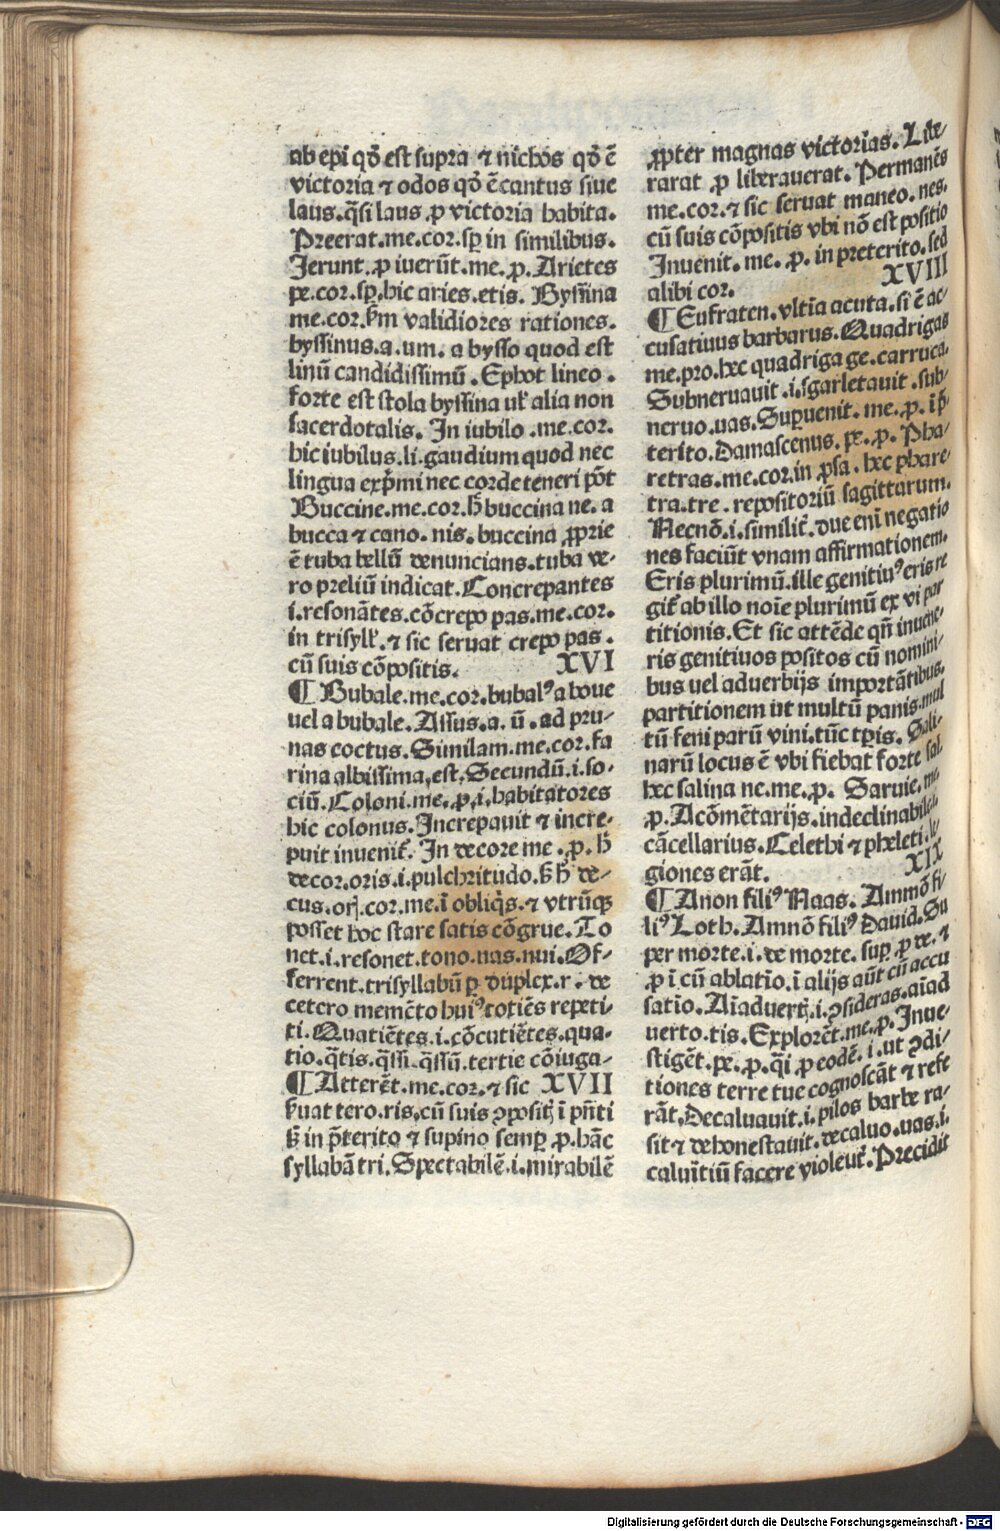 ab epi qđ est supra ⁊ nichos qđ ē
victoria ⁊ odos qđ ē cantus siue
laus. q̄si laus ꝓ victoria habita.
Preerat. me. cor. sꝑ in similibus.
Jerunt. ꝓ iuerūt. me. ꝓ. Arietes
pe. cor. sꝑ. hic aries. etis. Byssina
me. cor. ẜm validiores rationes.
byssinus. a. um. a bysso quod est
linū candidissimū. Ephot lineo.
forte est stola byssina uł alia non
sacerdotalis. In iubilo. me. cor.
hic iubilus. li. gaudium quod nec
lingua exp̄mi nec corde teneri pōt
Buccine. me. cor. h̄ buccina ne. a
bucca ⁊ cano. nis. buccina ꝓprie
ē tuba bellū denuncians. tuba ve-
ro preliū indicat. Concrepantes
i. resonātes. cōcrepo pas. me. cor.
in trisyll'. ⁊ sic seruat crepo pas.
cū suis cōpositis. XVI
¶ Bubale. me. cor. bubalꝰ a boue
uel a bubale. Assus. a. ū. ad pru-
nas coctus. Similam. me. cor. fa
rina albissima est. Secundū. i. so-
ciū. Coloni. me. ꝓ. i. habitatores
hic colonus. Increpauit ⁊ incre-
puit inuenit̄. In decore me. ꝓ. h̄
decor. oris. i. pulchritudo. ẜ h̄ de-
cus. orꝭ. cor. me. ī obliq̄s. ⁊ vtrūqꝫ
posset hoc stare satis cōgrue. To
net. i. resonet. tono. nas. nui. Of-
ferrent. trisyllabū ꝑ duplex. r. de
cetero memēto huiꝰ totiēs repeti-
ti. Quatiētes. i. cōcutiētes. qua-
tio. q̄tis. q̄ssi. q̄ssū. tertie cōiuga-
¶ Atterēt. me. cor. ⁊ sic XVII
ẜuat tero. ris. cū suis ꝯpositꝭ ī pn̄ti
ẜ in p̄terito ⁊ supino semꝑ. ꝓ. hāc
syllabā tri. Spectabilē. i. mirabilē
ꝓpter magnas victorias. Libe-
rarat ꝓ liberauerat. Permanēs
me. cor. ⁊ sic seruat maneo. nes.
cū suis cōpositis vbi nō est positio
Inuenit. me. ꝓ. in preterito. sed
alibi cor. XVIII
¶ Eufraten. vltīa acuta. si ē ac-
cusatiuus barbarus. Quadrigas
me. pro. hec quadriga ge. carruca.
Subneruauit. i. sgarletauit. sub-
neruo. uas. Suꝑuenit. me. ꝓ. ī p̄-
terito. Damascenus. pe. ꝓ. Pha-
retras. me. cor. in ꝓsa. hec phare-
tra. tre. repositoriū sagittarum.
Necnō. i. similit̄. due eni negatio
nes faciūt vnam affirmationem.
Eris plurimū. ille genitiuꝰ eris re
git̄ ab illo noīe plurimū ex vi par
titionis. Et sic attēde qn̄ inuene-
ris genitiuos positos cū nomini-
bus uel aduerbijs importātibus.
partitionem ut multū panis. mul
tū feni parū vini. tūc tꝑis. Sali-
narū locus ē vbi fiebat forte sal.
hec salina ne. me. ꝓ. Saruie. me.
ꝓ. A cōmētarijs. indeclinabile. i.
cācellarius. Celethi ⁊ pheleti. le-
giones erāt. XIX
¶ Anon filiꝰ Naas. Ammō fi-
liꝰ Loth. Amnō filiꝰ Dauid. Su
per morte. i. de morte. suꝑ. ꝓ de. ⁊
ꝓ ī cū ablatīo. ī alijs aūt cū accu
satīo. Aīaduertꝭ. i. ꝯsideras. aīad
uerto. tis. Explorēt. me. ꝓ. Inue-
stigēt. pe. ꝓ. q̄i ꝓ eodē. i. ut ꝯdi-
tiones terre tue cognoscāt ⁊ refe
rāt. Decaluauit. i. pilos barbe ra-
sit ⁊ dehonestauit. decaluo. uas. i.
caluītiū facere violeut̄. Precidit
Digitalisierung gefördert durch die Deutsche Forschungsgemeinschaft - DFG